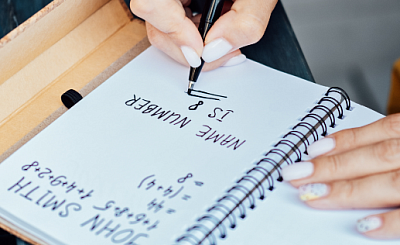 JOHN SMITH
1+6+8+5 1+4+9+2+8
= 44
= (4+4)
= 8
NAME NUMBER
IS 8